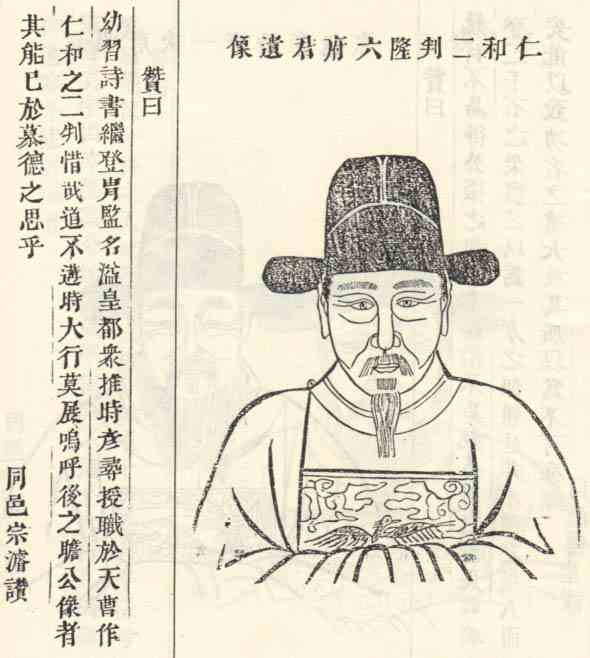 仁和二判隆六府君遺像
贊曰
幼習詩書繼登胄監名溢皇都衆推時彥尋授職於天曹作
仁和之二判惜哉道不遘時大行莫展嗚呼後之瞻公像者
其能已於慕德之思乎
同邑宗濬讚